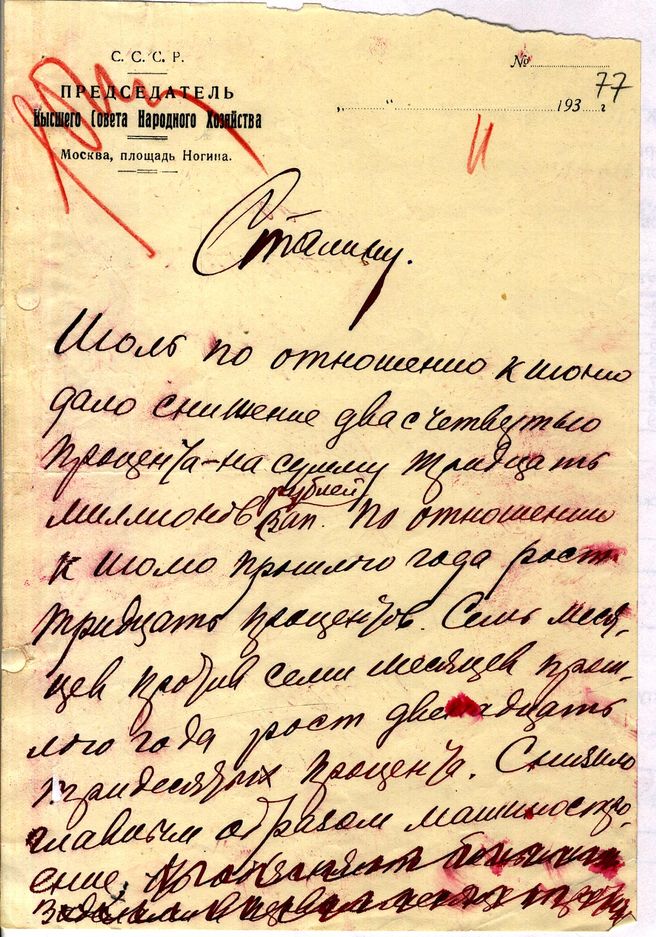 С. С. С. Р.
ПРЕДСЕДАТЕЛЬ
Высшего Совета Народного Хозяйства
Москва, площадь Ногина.
№
77
„ “ 193 г
Сталину.
Июль по отношению к июню
дало снижение два с четвертью
процента – на сумму тридцать
рублей
миллионов зап. По отношению
к июлю прошлого года рост
тридцать процентов. Семь меся-
цев против семи месяцев прош-
лого года рост двенадцать
три десятых процента. Снизило
главным образом машиностро-
ение,